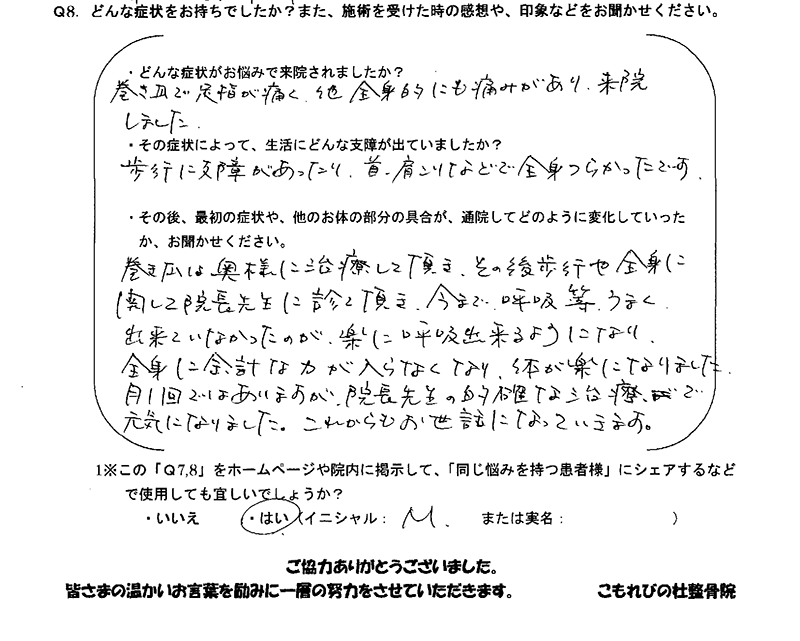 Q8. どんな症状をお持ちでしたか？また、施術を受けた時の感想や、印象などをお聞かせください。
・どんな症状がお悩みで来院されましたか？
巻き爪で足指が痛く、他 全身的にも痛みがあり、来院
しました.
・その症状によって、生活にどんな支障が出ていましたか？
歩行に支障があったり、首、肩こりなどで全身つらかったです.
・その後、最初の症状や、他のお体の部分の具合が、通院してどのように変化していった
か、お聞かせください。
巻き爪は奥様に治療して頂き、その後歩行や全身に
関して院長先生に診て頂き、今まで、呼吸等、うまく
出来ていなかったのが、楽に呼吸出来るようになり、
全身に余計な力が入らなくなり、体が楽になりました.
月1回ではありますが、院長先生の的確な治療で
元気になりました。これからもお世話になっていきます。
1※この「Q7,8」をホームページや院内に掲示して、「同じ悩みを持つ患者様」にシェアするなど
で使用しても宜しいでしょうか？
・いいえ ・はい（イニシャル： M. または実名： ）
ご協力ありがとうございました。
皆さまの温かいお言葉を励みに一層の努力をさせていただきます。 こもれびの杜整骨院